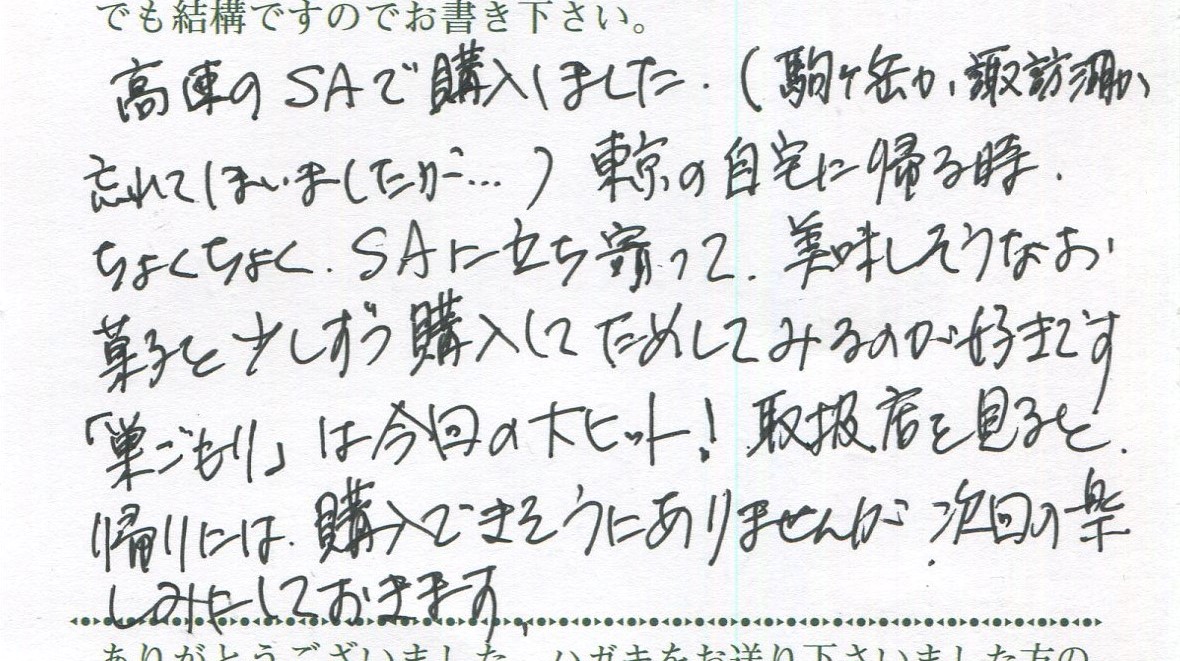 でも結構ですのでお書き下さい。
高速のSAで購入しました.(駒ヶ岳か、諏訪湖か、
忘れてしまいましたが…)東京の自宅に帰る時.
ちょくちょく.SAに立ち寄って.美味しそうなお
菓子を少しずつ購入してためしてみるのが好きです
「巣ごもり」は今回の大ヒット!取扱店を見ると.
帰りには.購入できそうにありませんが、次回の楽
しみにしておきます、
ありがとうございました。ハガキをお送り下さいました方の